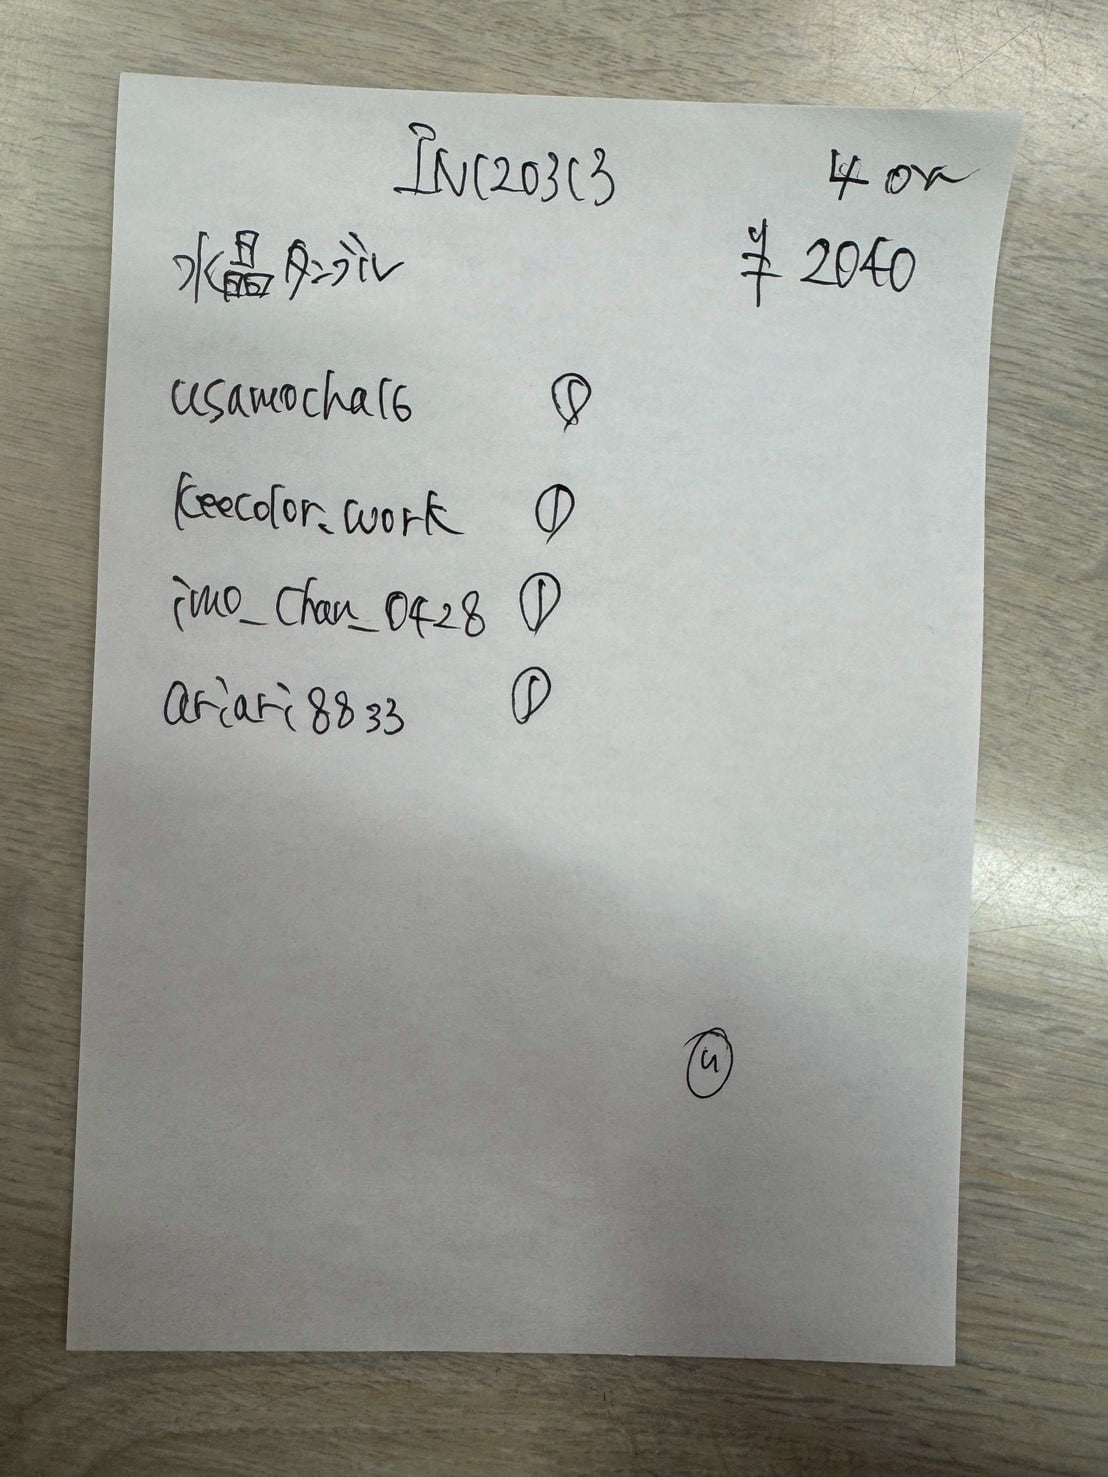 INC203C3 4 on
水晶タンブル ¥ 2040
usamocha16 ①
keecolor.work ①
imo_chan_0428 ①
ariari8833 ①
④